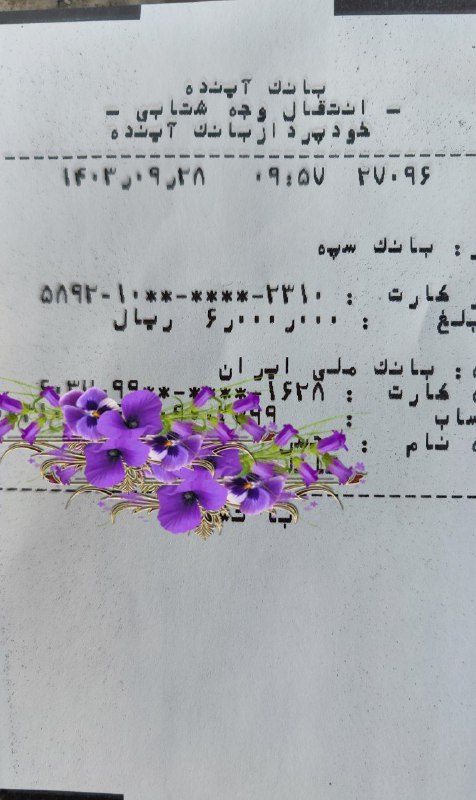 بانک آینده
- انتقال وجه شتابی -
خودپرداز بانک آینده
۱۴۰۳/۰۹/۲۸ ۰۹:۵۷ ۲۷۰۹۶
: بانک سپه
کارت : ۵۸۹۲-۱۰**-****-۲۳۱۰
: ۶٫۰۰۰٫۰۰۰ ریال
: بانک ملی ایران
کارت : ۶۰۳۷-۹۹**-****-۱۶۲۸
نام :